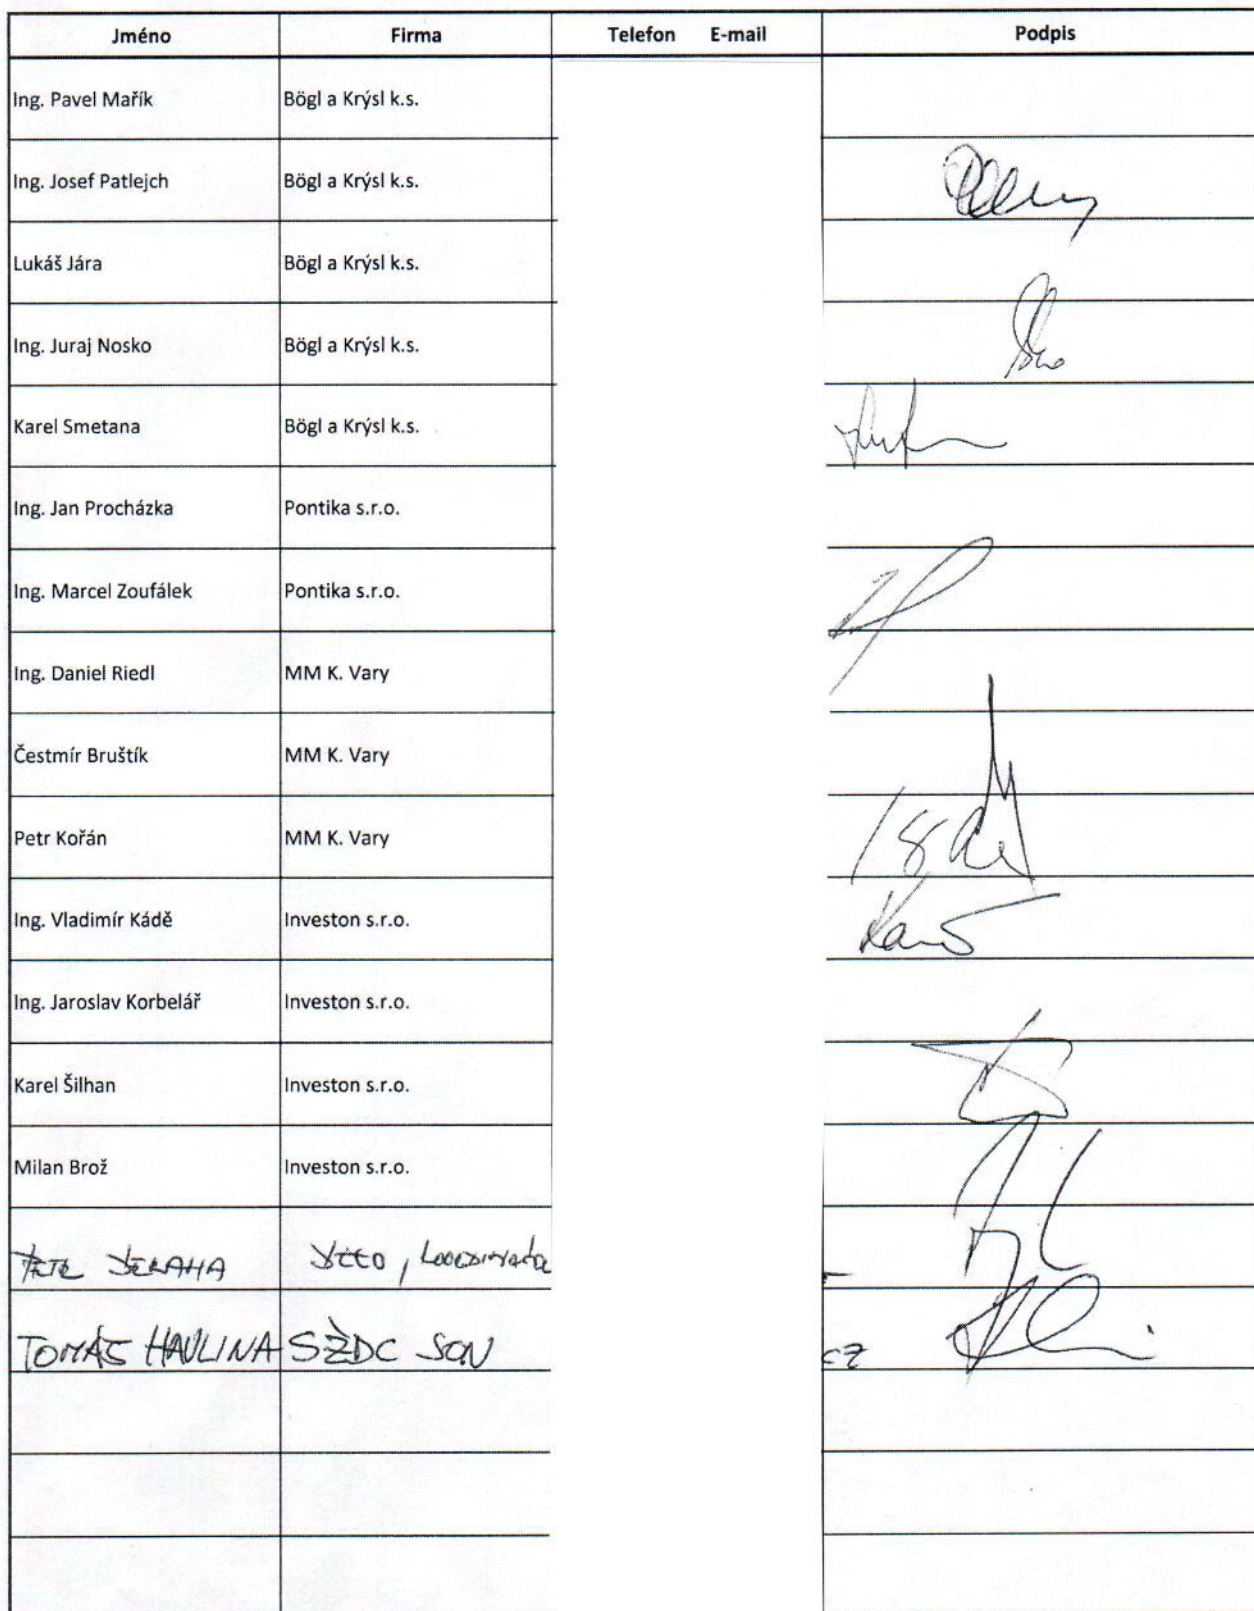 Jméno Firma Telefon E-mail Podpis
Ing. Pavel Mařík Bögl a Krýsl k.s.
Ing. Josef Patlejch Bögl a Krýsl k.s.
Lukáš Jára Bögl a Krýsl k.s.
Ing. Juraj Nosko Bögl a Krýsl k.s.
Karel Smetana Bögl a Krýsl k.s.
Ing. Jan Procházka Pontika s.r.o.
Ing. Marcel Zoufálek Pontika s.r.o.
Ing. Daniel Riedl MM K. Vary
Čestmír Bruštík MM K. Vary
Petr Kořán MM K. Vary
Ing. Vladimír Kádě Investon s.r.o.
Ing. Jaroslav Korbelář Investon s.r.o.
Karel Šilhan Investon s.r.o.
Milan Brož Investon s.r.o.
PETR
TOMÁŠ HAVLINA SŽDC SON CZ